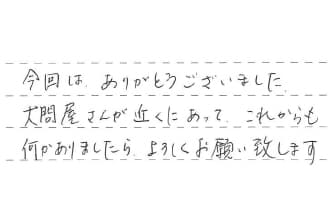 今回は、ありがとうございました。
犬問屋さんが近くにあって、これからも
何かありましたら、よろしくお願い致します